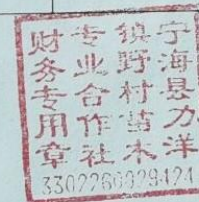 宁海县力洋
镇野村苗木
专业合作社
财务专用章
3302260029424